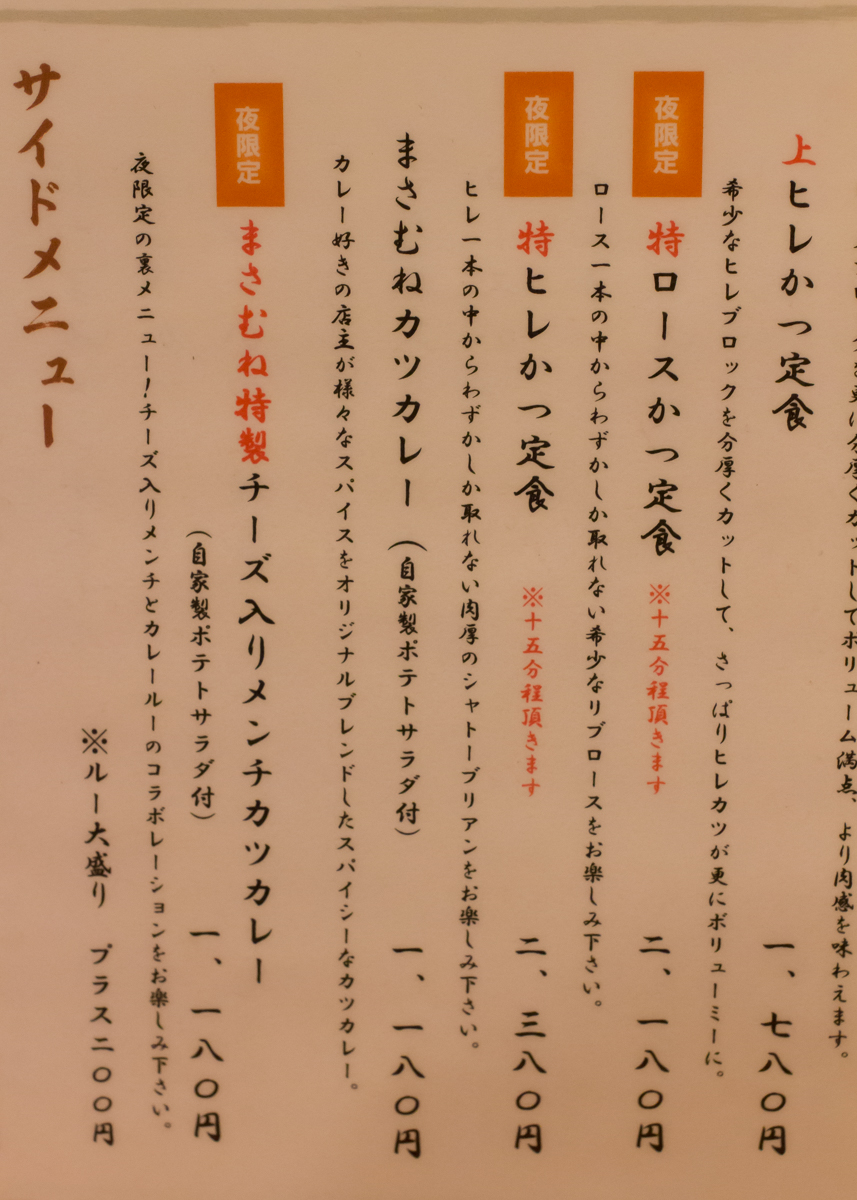 分厚くカットしてボリューム満点、より肉感を味わえます。
上ヒレかつ定食 一、七八〇円
希少なヒレブロックを分厚くカットして、さっぱりヒレカツが更にボリューミーに。
夜限定 特ロースかつ定食 ※十五分程頂きます 二、一八〇円
ロース一本の中からわずかしか取れない希少なリブロースをお楽しみ下さい。
夜限定 特ヒレかつ定食 ※十五分程頂きます 二、三八〇円
ヒレ一本の中からわずかしか取れない肉厚のシャトーブリアンをお楽しみ下さい。
まさむねカツカレー(自家製ポテトサラダ付) 一、一八〇円
カレー好きの店主が様々なスパイスをオリジナルブレンドしたスパイシーなカツカレー。
夜限定 まさむね特製チーズ入りメンチカツカレー
(自家製ポテトサラダ付) 一、一八〇円
夜限定の裏メニュー!チーズ入りメンチとカレールーのコラボレーションをお楽しみ下さい。
※ルー大盛り プラス二〇〇円
サイドメニュー